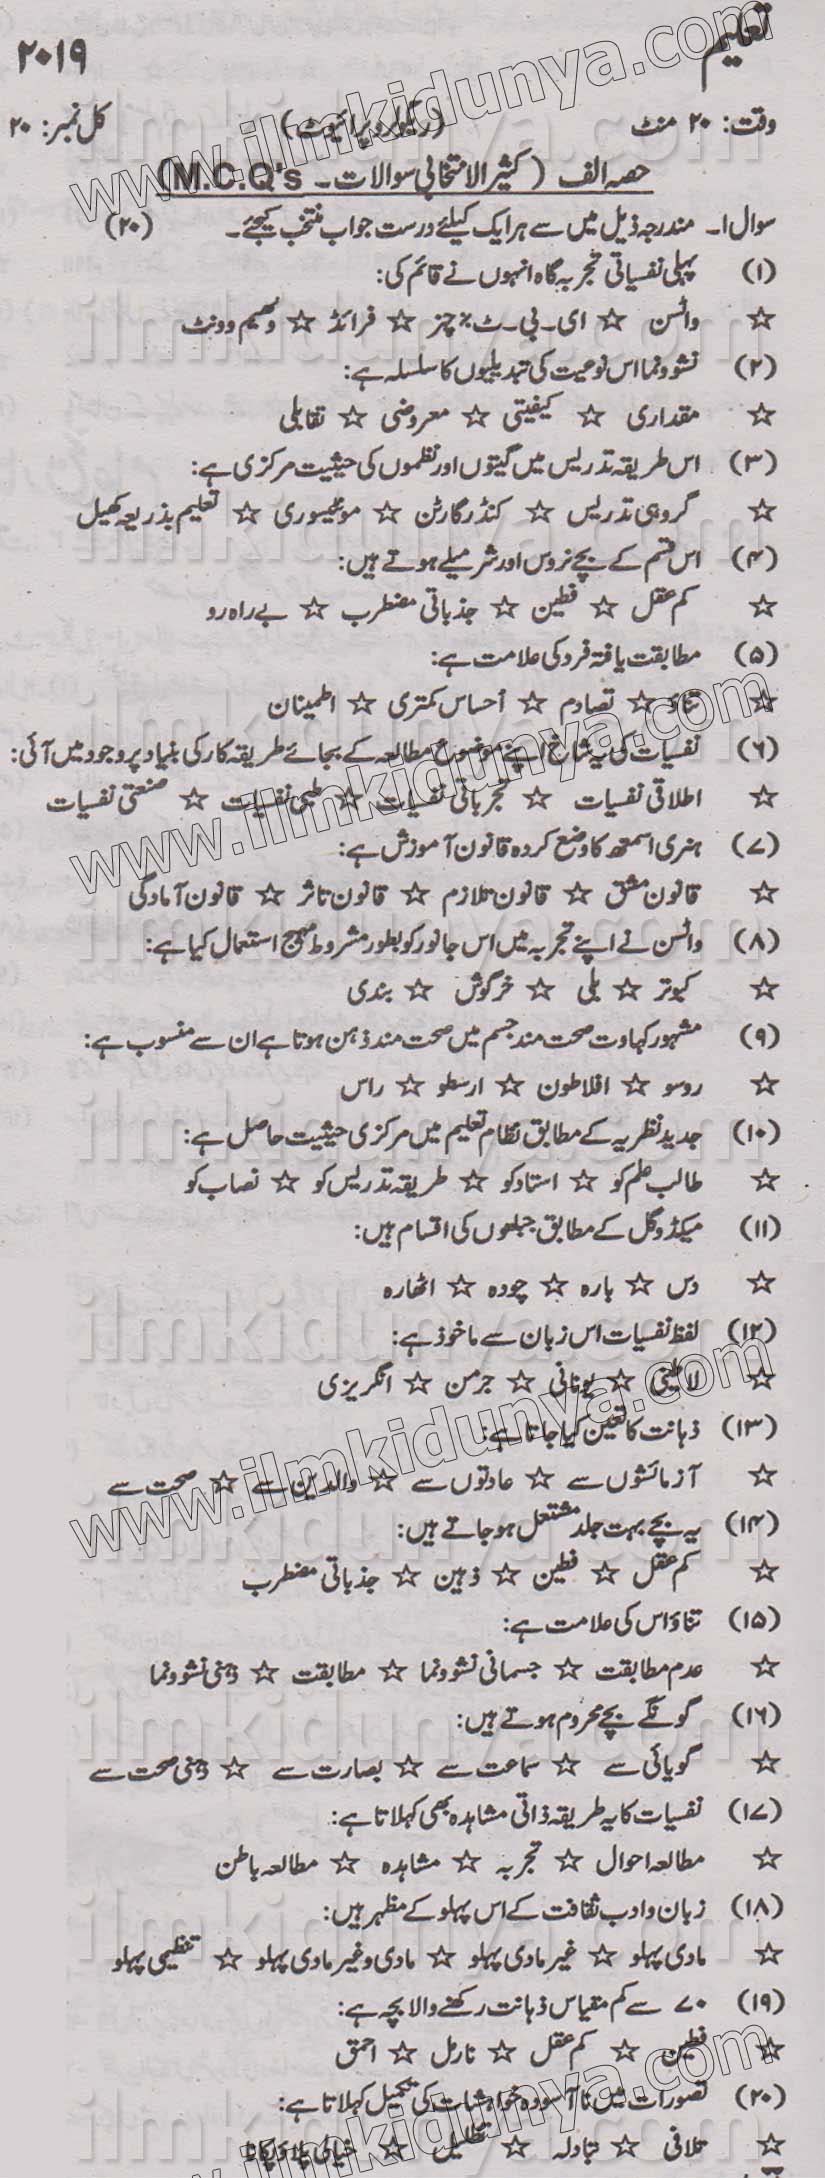 تعلیم
۲۰۱۹
وقت: ۲۰ منٹ (ریگولر و پرائیوٹ) کل نمبر: ۲۰
حصہ الف (کثیر الانتخابی سوالات۔ M.C.Q's)
سوال ۱۔ مندرجہ ذیل میں سے ہر ایک کیلئے درست جواب منتخب کیجئے۔ (۲۰)
(۱) پہلی نفسیاتی تجربہ گاہ انہوں نے قائم کی:
☆ واٹسن ☆ ای۔بی۔ٹچنر ☆ فرائڈ ☆ وہیم وونٹ
(۲) نشوونما اس نوعیت کی تبدیلیوں کا سلسلہ ہے:
☆ مقداری ☆ کیفیتی ☆ معروضی ☆ تقابلی
(۳) اس طریقہ تدریس میں گیتوں اور نظموں کی حیثیت مرکزی ہے:
☆ گروہی تدریس ☆ کنڈرگارٹن ☆ مونٹیسوری ☆ تعلیم بذریعہ کھیل
(۴) اس قسم کے بچے نروس اور شرمیلے ہوتے ہیں:
☆ کم عقل ☆ فطین ☆ جذباتی مضطرب ☆ بے راہ رو
(۵) مطابقت یافتہ فرد کی علامت ہے:
☆ تناؤ ☆ تصادم ☆ احساس کمتری ☆ اطمینان
(۶) نفسیات کی یہ شاخ اپنے موضوع مطالعہ کے بجائے طریقہ کار کی بنیاد پر وجود میں آئی:
☆ اطلاقی نفسیات ☆ تجرباتی نفسیات ☆ طبی نفسیات ☆ صنعتی نفسیات
(۷) ہنری اسمتھ کا وضع کردہ قانون آموزش ہے:
☆ قانون مشق ☆ قانون تلازم ☆ قانون تاثر ☆ قانون آمادگی
(۸) واٹسن نے اپنے تجربہ میں اس جانور کو بطور مشروط مہیج استعمال کیا ہے:
☆ کبوتر ☆ بلی ☆ خرگوش ☆ بندی
(۹) مشہور کہاوت صحت مند جسم میں صحت مند ذہن ہوتا ہے ان سے منسوب ہے:
☆ روسو ☆ افلاطون ☆ ارسطو ☆ راس
(۱۰) جدید نظریہ کے مطابق نظام تعلیم میں مرکزی حیثیت حاصل ہے:
☆ طالب علم کو ☆ استاد کو ☆ طریقہ تدریس کو ☆ نصاب کو
(۱۱) میکڈوگل کے مطابق جبلتوں کی اقسام ہیں:
☆ دس ☆ بارہ ☆ چودہ ☆ اٹھارہ
(۱۲) لفظ نفسیات اس زبان سے ماخوذ ہے:
☆ لاطینی ☆ یونانی ☆ جرمن ☆ انگریزی
(۱۳) ذہانت کا تعین کیا جاتا ہے:
☆ آزمائشوں سے ☆ عادتوں سے ☆ والدین سے ☆ صحت سے
(۱۴) یہ بچے بہت جلد مشتعل ہو جاتے ہیں:
☆ کم عقل ☆ فطین ☆ ذہین ☆ جذباتی مضطرب
(۱۵) تناؤ اس کی علامت ہے:
☆ عدم مطابقت ☆ جسمانی نشوونما ☆ مطابقت ☆ ذہنی نشوونما
(۱۶) گونگے بچے محروم ہوتے ہیں:
☆ گویائی سے ☆ سماعت سے ☆ بصارت سے ☆ ذہنی صحت سے
(۱۷) نفسیات کا یہ طریقہ ذاتی مشاہدہ بھی کہلاتا ہے:
☆ مطالعہ احوال ☆ تجربہ ☆ مشاہدہ ☆ مطالعہ باطن
(۱۸) زبان و ادب ثقافت کے اس پہلو کے مظہر ہیں:
☆ مادی پہلو ☆ غیر مادی پہلو ☆ مادی و غیر مادی پہلو ☆ تنظیمی پہلو
(۱۹) ۷۰ سے کم مقیاس ذہانت رکھنے والا بچہ ہے:
☆ فطین ☆ کم عقل ☆ نارمل ☆ احمق
(۲۰) تصورات میں نا آسودہ خواہشات کی تکمیل کہلاتا ہے:
☆ تلافی ☆ تبادلہ ☆ تظلیل ☆ خیالی پلاؤ پکانا